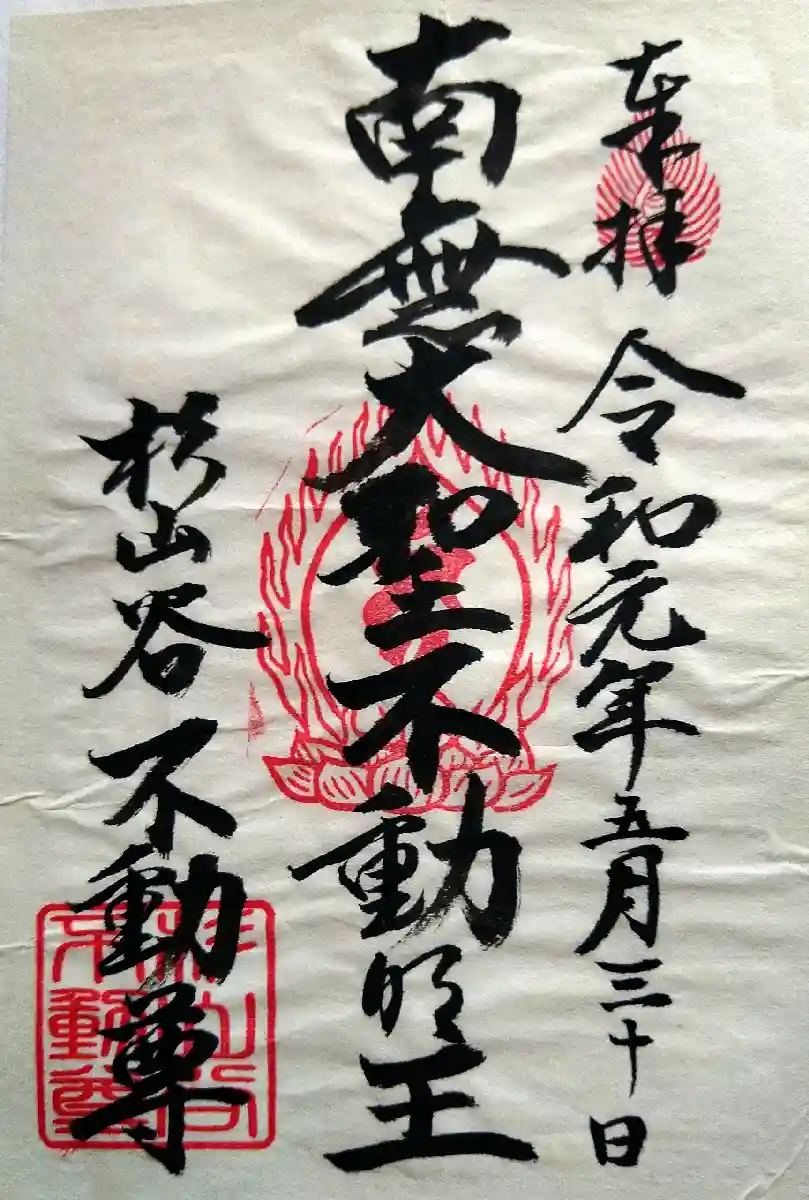 奉拝 令和元年五月三十日
南無大聖不動明王
杉山谷不動尊
杉山谷不動尊